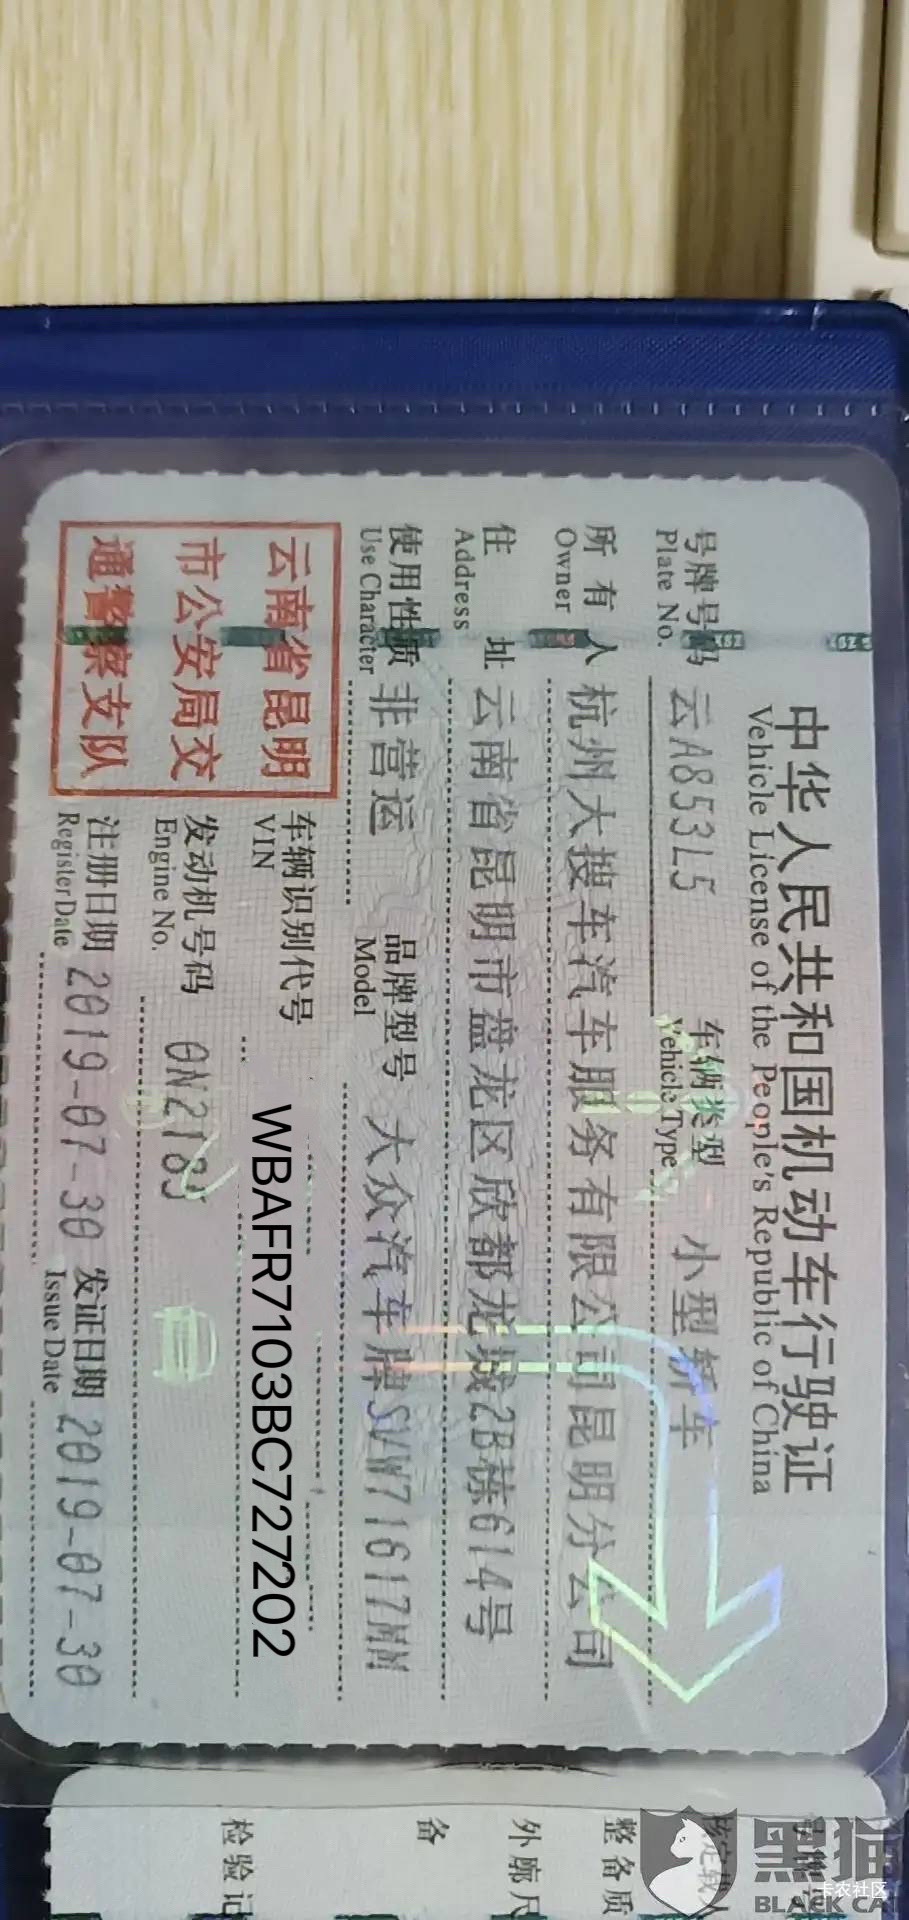 中华人民共和国机动车行驶证
Vehicle License of the People's Republic of China
号牌号码 云A853L5 车辆类型 小型轿车
Plate No. Vehicle Type
所有人 杭州大搜车汽车服务有限公司昆明分公司
Owner
住址 云南省昆明市盘龙区欣都龙城2B栋614号
Address
使用性质 非营运 品牌型号 大众汽车牌SVW71617MM
Use Character Model
云南省昆明
市公安局交
通警察支队
车辆识别代号 WBAFR7103BC727202
VIN
发动机号码
Engine No.
注册日期 2019-07-30 发证日期 2019-07-30
Register Date Issue Date
整备质
外廓尺
备
检验记
黑猫
BLACK CAT
卡农社区